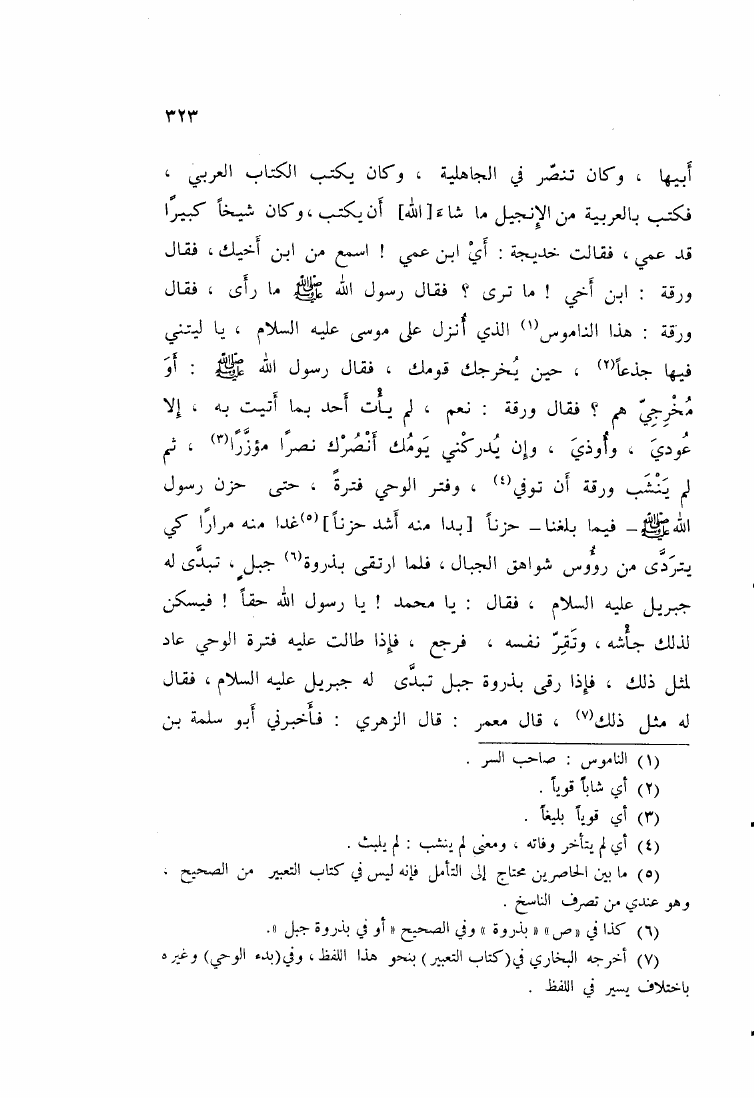 ٣٢٣
أبيها ، وكان تنصّر في الجاهلية ، وكان يكتب الكتاب العربي ،
فكتب بالعربية من الإنجيل ما شاءَ [ الله ] أن يكتب ، وكان شيخاً كبيرًا
قد عمي ، فقالت خديجة : أيْ ابن عمي ! اسمع من ابن أخيك ، فقال
ورقة : ابن أخي ! ما ترى ؟ فقال رسول الله ﷺ ما رأى ، فقال
ورقة : هذا الناموس(١) الذي أُنزل على موسى عليه السلام ، يا ليتني
فيها جذعاً(٢) ، حين يُخرجك قومك ، فقال رسول الله ﷺ : أَوَ
مُخْرِجِيّ هم ؟ فقال ورقة : نعم ، لم يأْت أحد بما أتيت به ، إلا
عُوديَ ، وأُوذيَ ، وإن يُدركْني يَومُك أَنْصُرْك نصرًا مؤزَّرًا(٣) ، ثم
لم يَنْشَب ورقة أن توفي(٤) ، وفتر الوحي فترةً ، حتى حزن رسول
الله ﷺ ـ فيما بلغنا ـ حزناً [ بدا منه أشد حزناً ](٥) غدا منه مرارًا كي
يتردَّى من رؤُوس شواهق الجبال ، فلما ارتقى بذروة(٦) جبل ، تبدَّى له
جبريل عليه السلام ، فقال : يا محمد ! يا رسول الله حقاً ! فيسكن
لذلك جأْشه ، وتَقِرّ نفسه ، فرجع ، فإذا طالت عليه فترة الوحي عاد
لمثل ذلك ، فإذا رقى بذروة جبل تبدَّى له جبريل عليه السلام ، فقال
له مثل ذلك(٧) ، قال معمر : قال الزهري : فأَخبرني أبو سلمة بن
(١) الناموس : صاحب السر .
(٢) أي شاباً قوياً .
(٣) أي قوياً بليغاً .
(٤) أي لم يتأخر وفاته ، ومعنى لم ينشب : لم يلبث .
(٥) ما بين الحاصرين محتاج إلى التأمل فإنه ليس في كتاب التعبير من الصحيح ،
وهو عندي من تصرف الناسخ .
(٦) كذا في «ص» « بذروة » وفي الصحيح « أو في بذروة جبل ».
(٧) أخرجه البخاري في (كتاب التعبير) بنحو هذا اللفظ ، وفي (بدء الوحي) وغيره
باختلاف يسير في اللفظ .